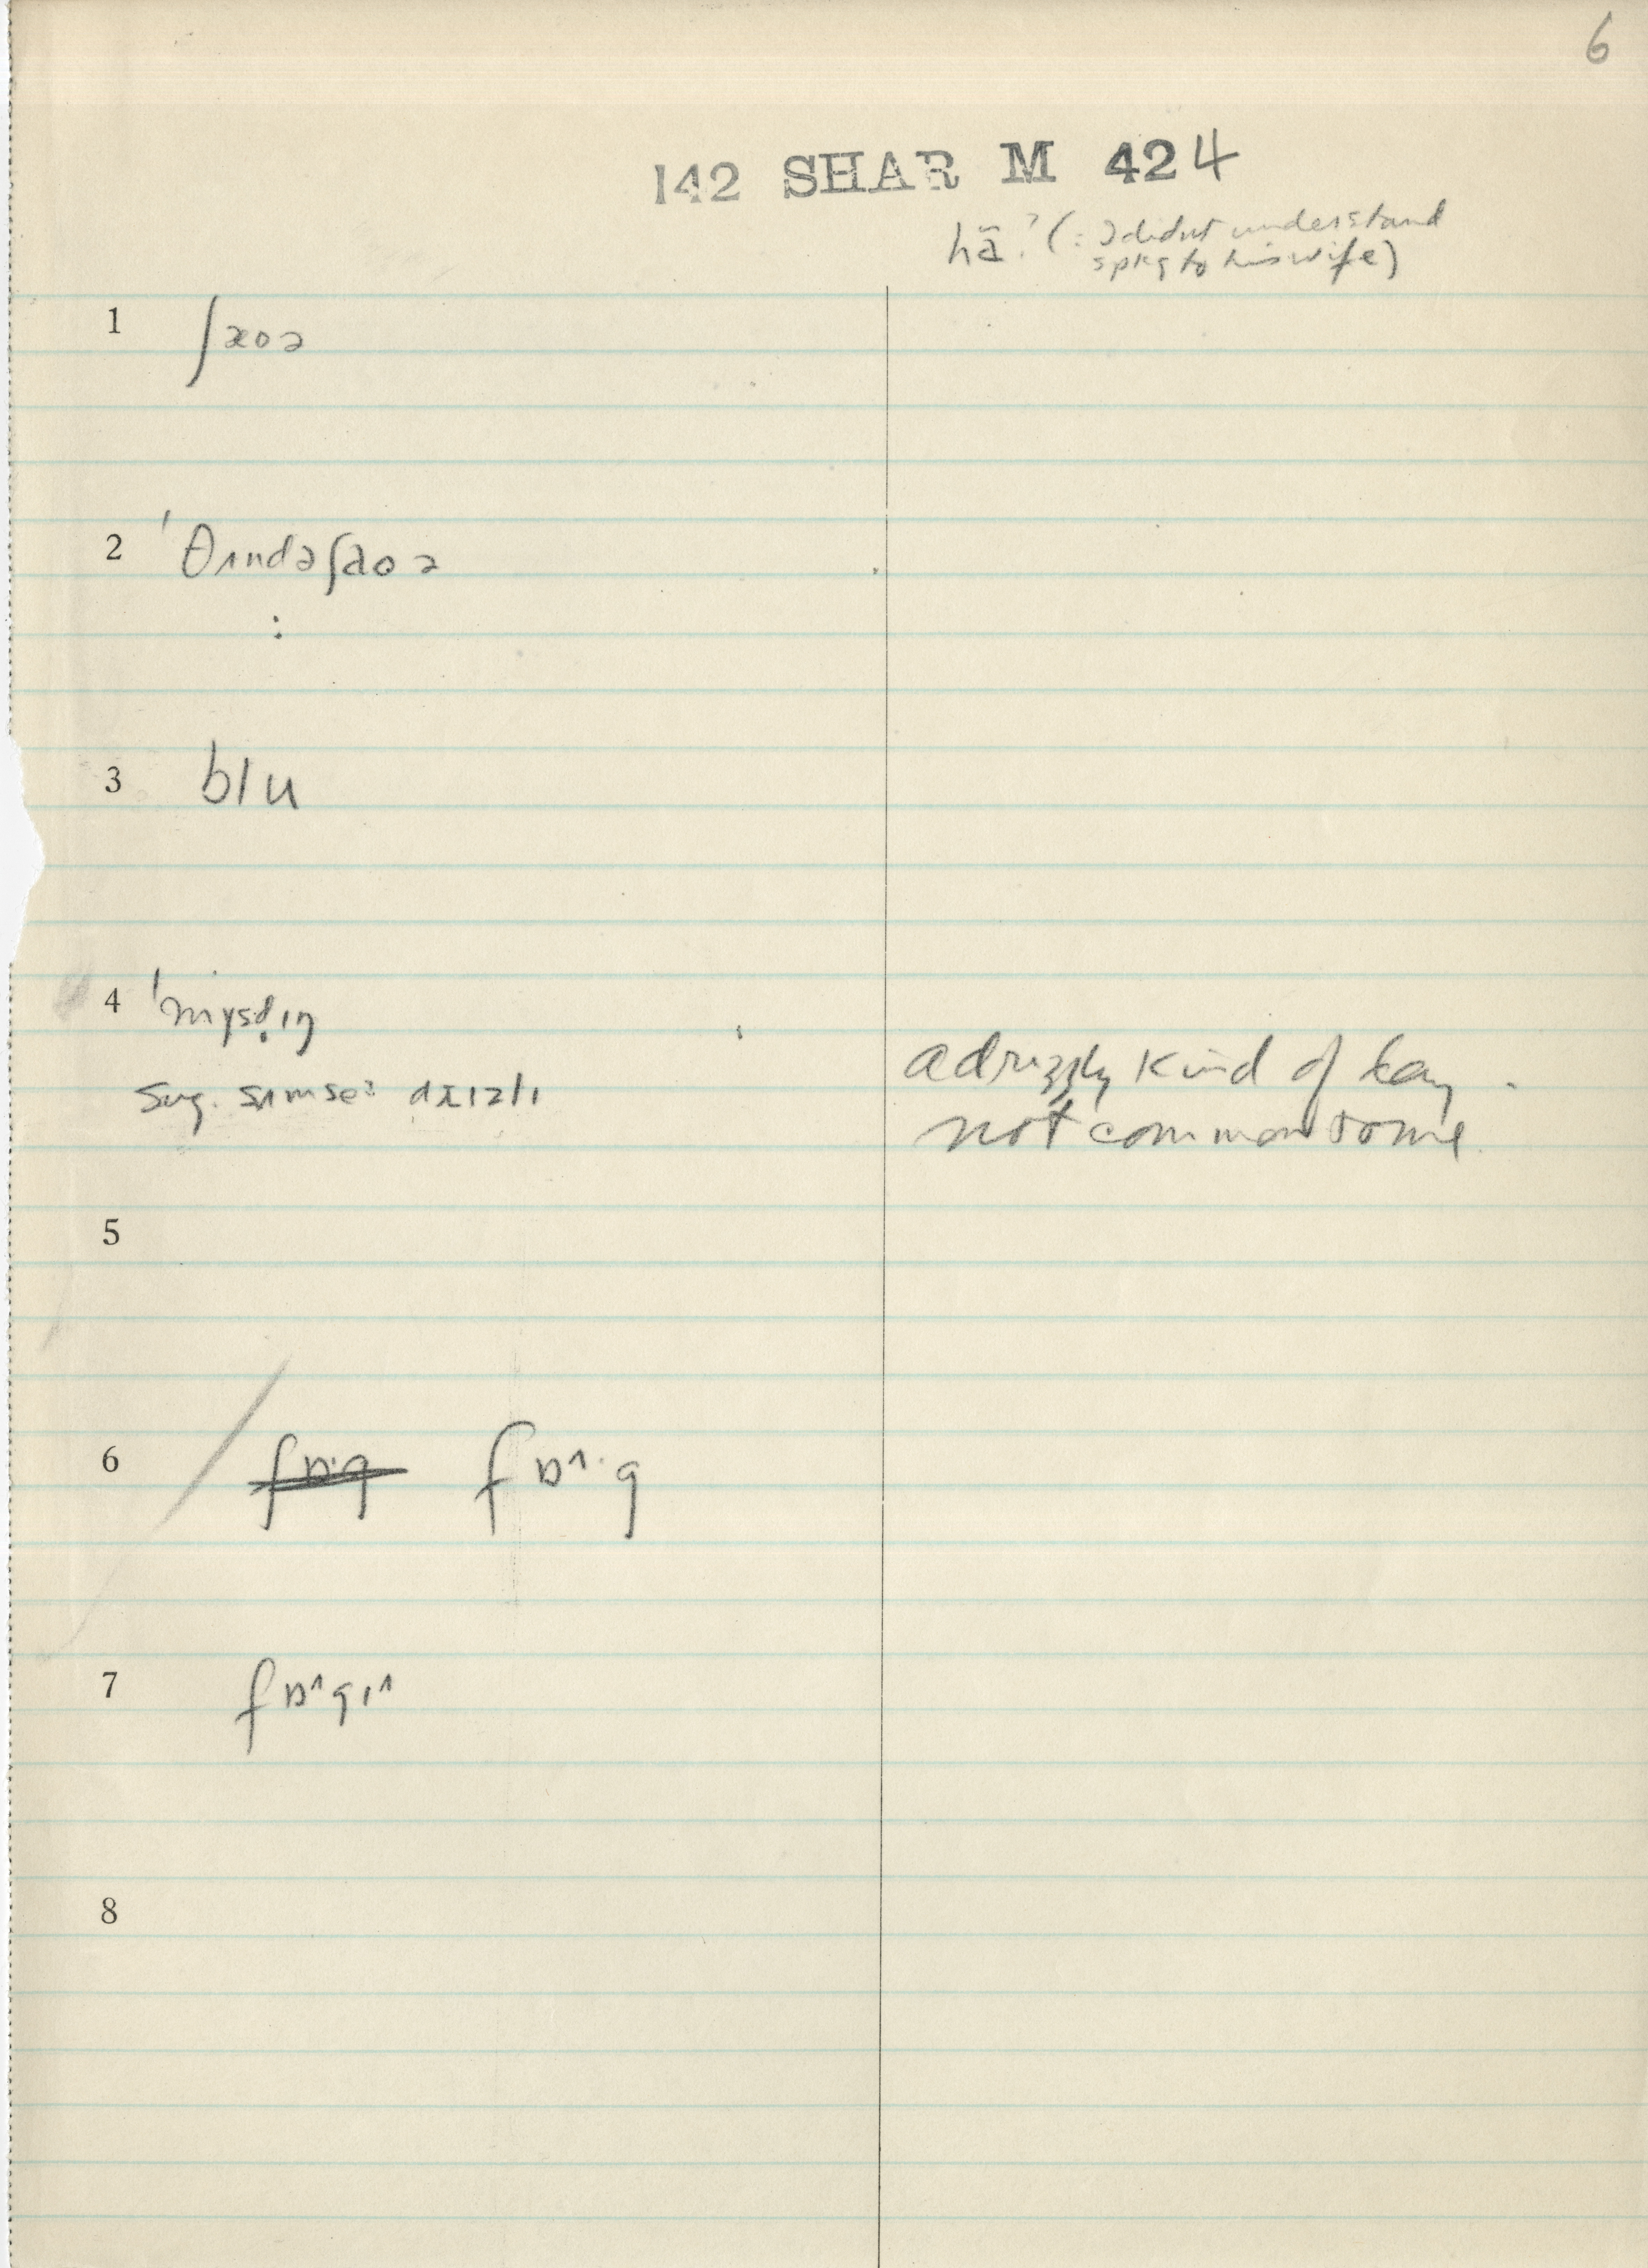 6
142 SHAR M 424
hã? (: I didnt understand
spkg to his wife)
1 ʃaoə
2 ˈθʌndəʃaoə
:
3 blu
4
sug. sʌmse:
a drizzly kind of
not common to me.
5
6 fɒˑg fɒ^ˑg
7 fɒ^gɪ^
8